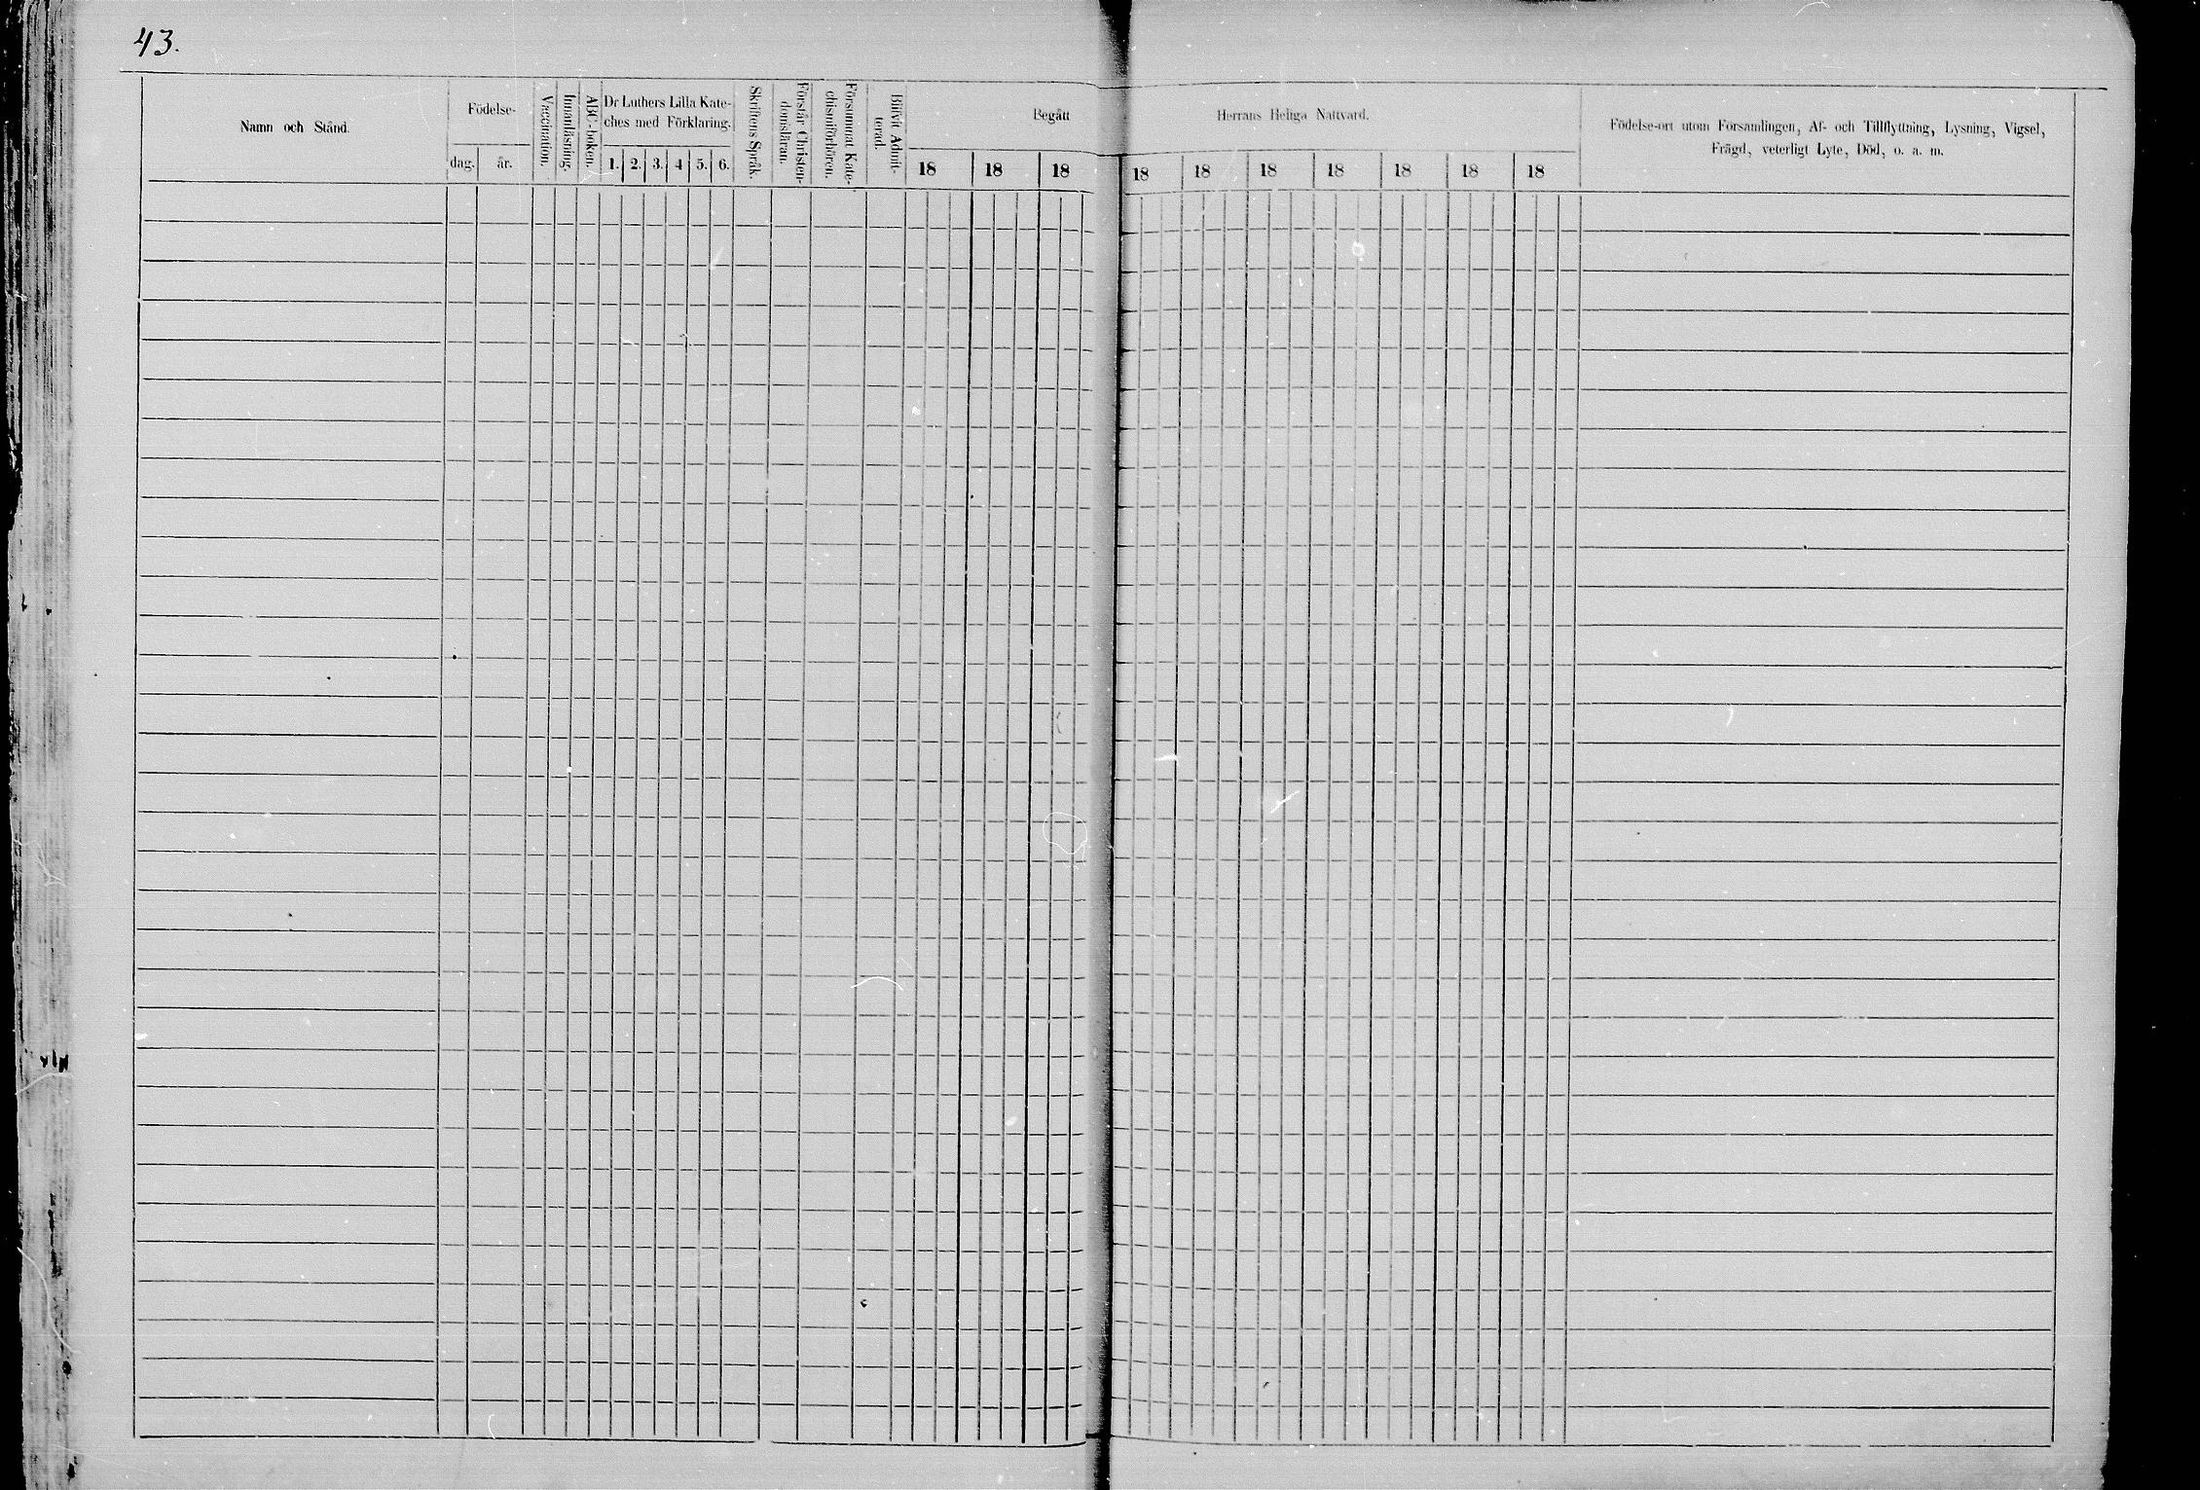 43.
Namn och Stånd.
Födelse-
dag. år.
Vaccination.
Innanläsning.
ABC-boken.
Dr Luthers Lilla Kate-
ches med Förklaring.
1. 2. 3. 4 5. 6.
Skriftens Språk.
Förstår Christen-
domsläran.
Försummat Kate-
chismiförhören.
Blifvit Admit-
terad.
Begått Herrans Heliga Nattvard.
18 18 18 18 18 18 18 18 18 18
Födelse-ort utom Församlingen, Af- och Tillflyttning, Lysning, Vigsel,
Frägd, veterligt Lyte, Död, o. a. m.